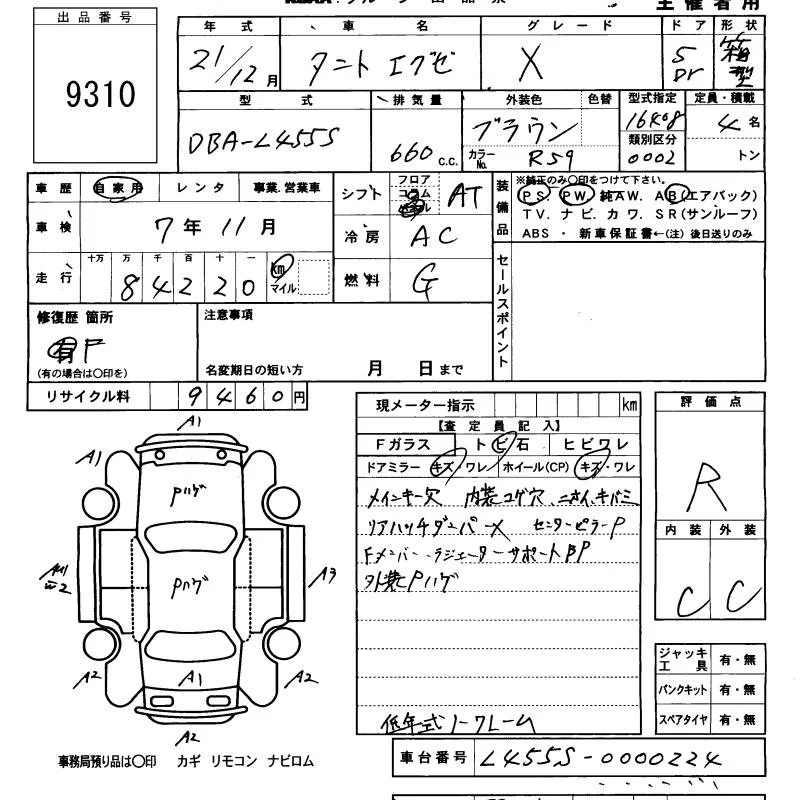 出品番号
9310
主催者用
年式 車名 グレード ドア 形状
21/12月 タント エグゼ X 5Dr 箱型
型式 排気量 外装色 色替 型式指定 定員・積載
DBA-L455S 660c.c. ブラウン 16408 4名
カラーNo. R59 類別区分 0002 トン
車歴 自家用 レンタ 事業.営業車
車検 7年 11月
走行 十万 万 千 百 十 一
84220 km マイル
シフト フロア コラム AT
冷房 AC
燃料 G
装備品 ※純正のみ〇印をつけて下さい。
PS. PW. 純AW. AB(エアバック)
TV. ナビ. カワ. SR(サンルーフ)
ABS ・ 新車保証書←(注)後日送りのみ
セールスポイント
修復歴 箇所
有 F
(有の場合は〇印を)
注意事項
名変期日の短い方 月 日まで
リサイクル料 9460円
現メーター指示 km
【査定員記入】
Fガラス トビ石 ヒビワレ
ドアミラー キズ・ワレ ホイール(CP) キズ・ワレ
メインキー欠 内装コゲ穴、
リアハッチダンパーX センターピラーP
Fメンバー、ラジエーターサポートBP
外装Pハゲ
低年式ノークレーム
評価点
R
内装 外装
C C
ジャッキ工具 有・無
パンクキット 有・無
スペアタイヤ 有・無
A1
A1
Pハゲ
Pハゲ
A3
A2
A1
A2
A2
事務局預り品は〇印 カギ リモコン ナビロム
車台番号 L455S-0000224